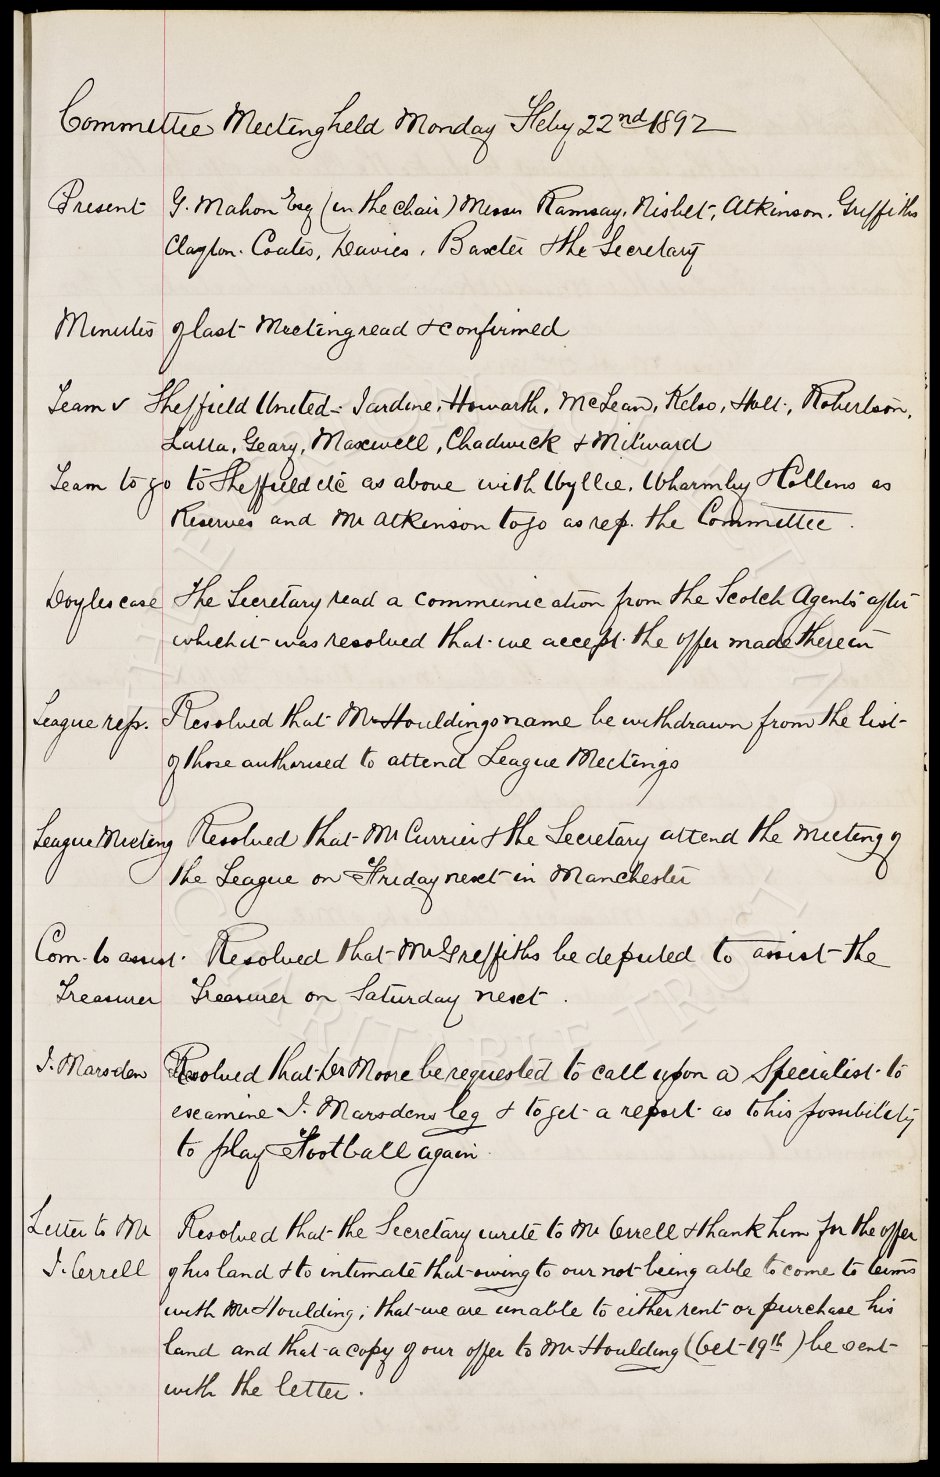 Committee Meeting held Monday Feby 22nd 1892
Present G. Mahon Esq (in the chair) Messrs Ramsay, Nisbet, Atkinson, Griffiths
Clayton. Coates, Davies, Baxter & the Secretary
Minutes of last Meeting read & confirmed
Team v Sheffield United - Jardine, Howarth, McLean, Kelso, Holt, Robertson,
Latta, Geary, Maxwell, Chadwick & Milward
Team to go to Sheffield etc as above with Wyllie, Wharmby & Collins as
Reserves and Mr Atkinson to go as rep. the Committee.
Doyles case The Secretary read a communication from the Scotch Agents after
which it was resolved that we accept the offer made therein
League rep. Resolved that Mr Houldings name be withdrawn from the list
of those authorised to attend League Meetings
League Meeting Resolved that Mr Currier & the Secretary attend the meeting of
the League on Friday next in Manchester
Com. to assist Resolved that Mr Griffiths be deputed to assist the
Treasurer Treasurer on Saturday next.
J. Marsden Resolved that Dr Moore be requested to call upon a Specialist to
examine J. Marsdens leg & to get a report as to his possibility
to play Football again
Letter to Mr Resolved that the Secretary write to Mr Orrell & thank him for the offer
J. Orrell of his land & to intimate that owing to our not being able to come to terms
with Mr Houlding, that we are unable to either rent or purchase his
land and that a copy of our offer to Mr Houlding (Oct 19th) be sent
with the letter.
EVERTON COLLECTION
CHARITABLE TRUST